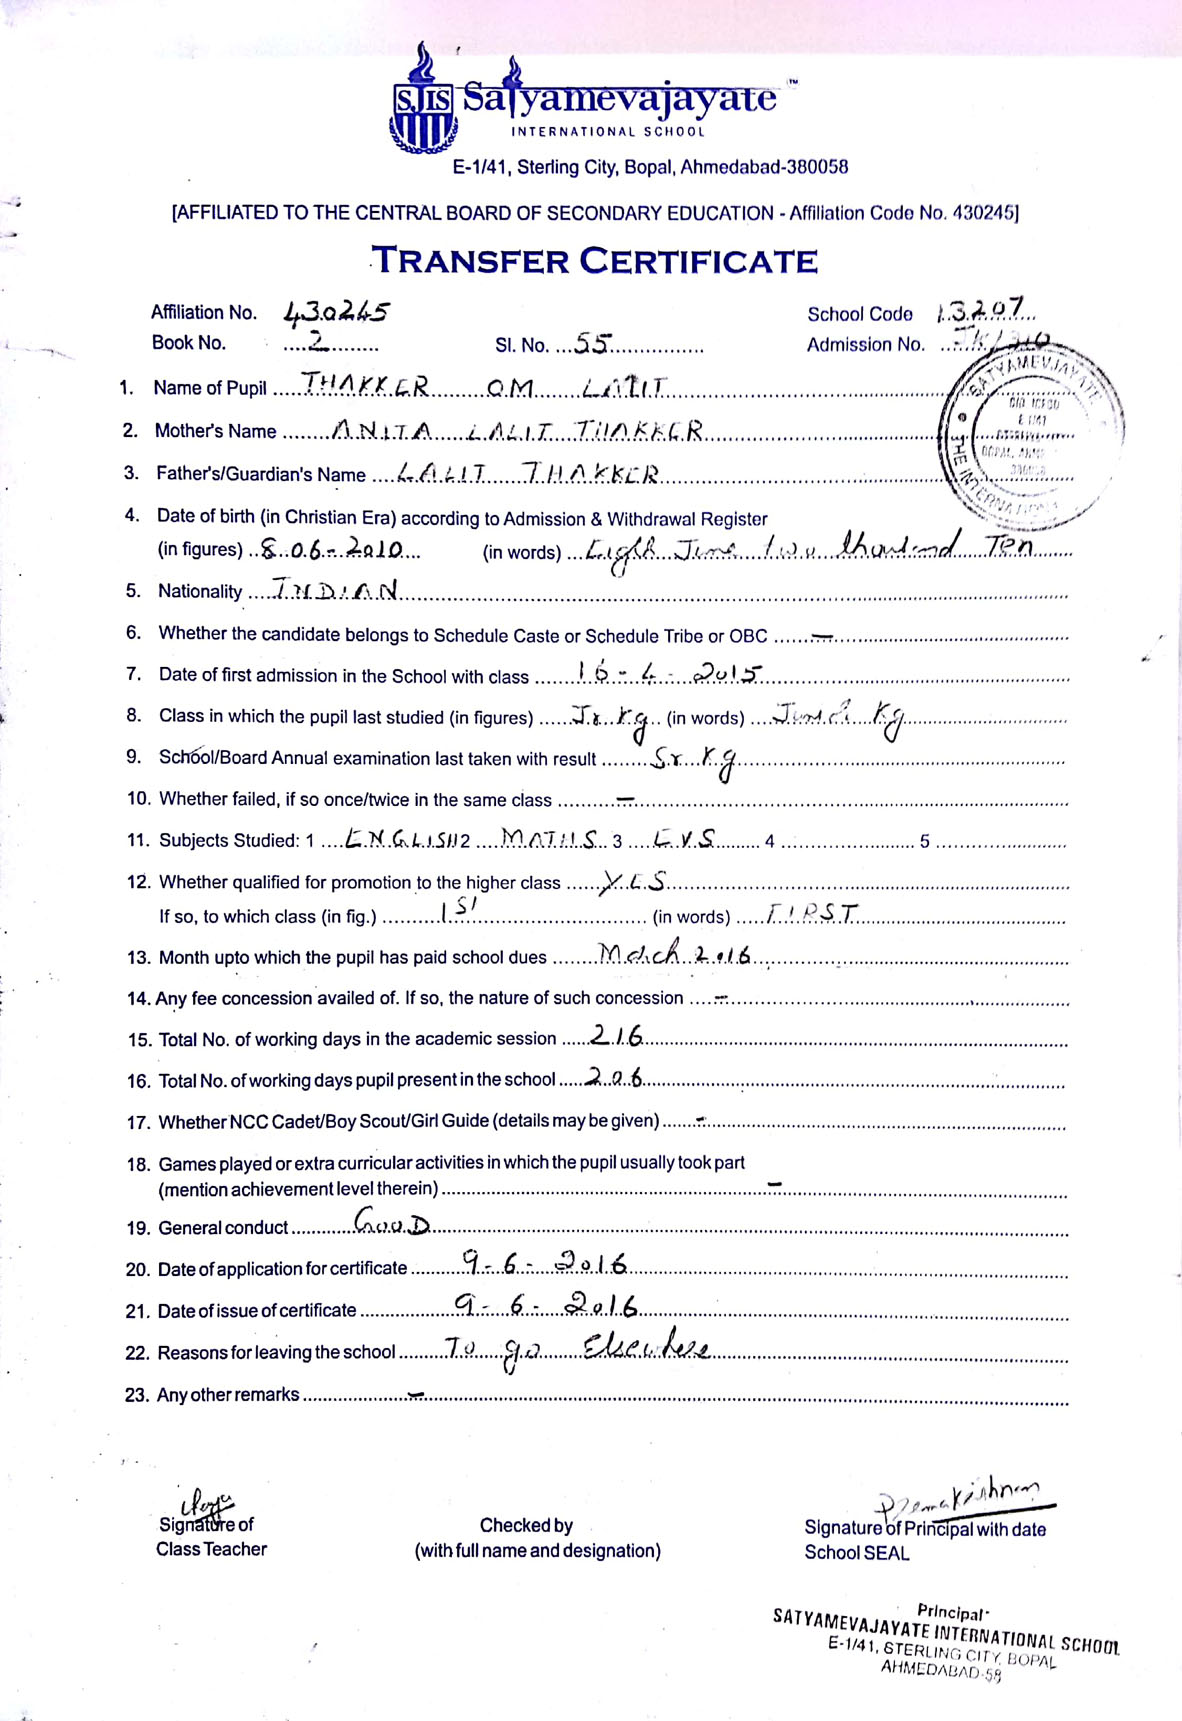 SJIS Satyamevajayate ™
INTERNATIONAL SCHOOL
E-1/41, Sterling City, Bopal, Ahmedabad-380058
[AFFILIATED TO THE CENTRAL BOARD OF SECONDARY EDUCATION - Affiliation Code No. 430245]
TRANSFER CERTIFICATE
Affiliation No. 430245 School Code 13207
Book No. 2 Sl. No. 55 Admission No. JK/310
SATYAMEVJAYATE
THE INTERNATIONAL
1. Name of Pupil THAKKER OM LALIT
2. Mother's Name ANITA LALIT THAKKER
3. Father's/Guardian's Name LALIT THAKKER
4. Date of birth (in Christian Era) according to Admission & Withdrawal Register
(in figures) 8.06-2010 (in words) Eight June two thousand Ten
5. Nationality INDIAN
6. Whether the candidate belongs to Schedule Caste or Schedule Tribe or OBC -
7. Date of first admission in the School with class 16-4-2015
8. Class in which the pupil last studied (in figures) Jr. Kg (in words) Junior Kg
9. School/Board Annual examination last taken with result Sr. Kg
10. Whether failed, if so once/twice in the same class -
11. Subjects Studied: 1 ENGLISH 2 MATHS 3 EVS 4 5
12. Whether qualified for promotion to the higher class YES
If so, to which class (in fig.) 1st (in words) FIRST
13. Month upto which the pupil has paid school dues March 2016
14. Any fee concession availed of. If so, the nature of such concession -
15. Total No. of working days in the academic session 216
16. Total No. of working days pupil present in the school 206
17. Whether NCC Cadet/Boy Scout/Girl Guide (details may be given) -
18. Games played or extra curricular activities in which the pupil usually took part
(mention achievement level therein) -
19. General conduct GOOD
20. Date of application for certificate 9-6-2016
21. Date of issue of certificate 9-6-2016
22. Reasons for leaving the school To go Elsewhere
23. Any other remarks -
Premakrishnan
Signature of Checked by Signature of Principal with date
Class Teacher (with full name and designation) School SEAL
Principal
SATYAMEVAJAYATE INTERNATIONAL SCHOOL
E-1/41, STERLING CITY, BOPAL
AHMEDABAD-58